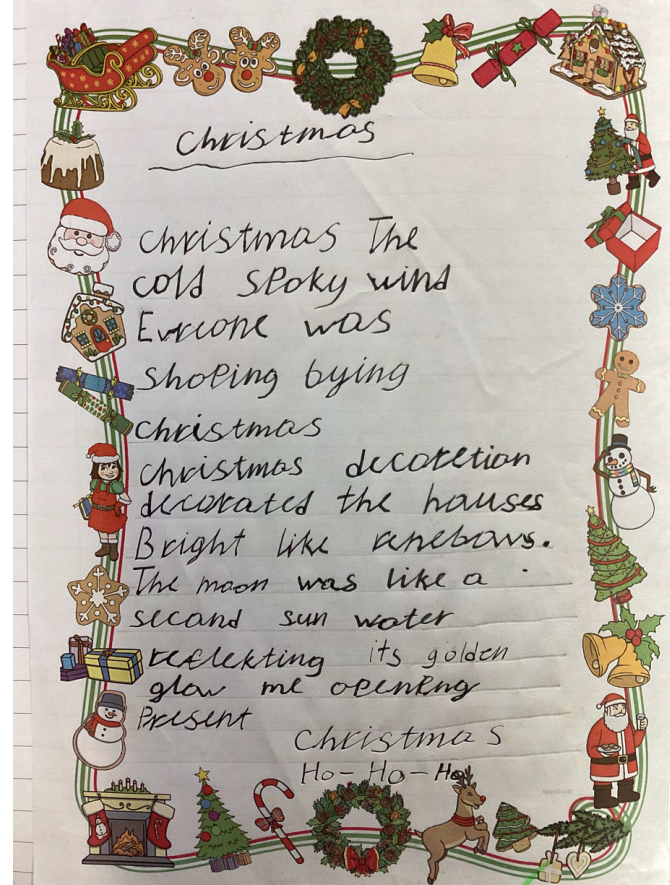 Christmas
Christmas The
cold spoky wind
Evreone was
shoping bying
christmas
christmas decoretion
decorated the hauses
Bright like renebows.
The moon was like a
second sun water
reflekting its golden
glow me openeng
Present
Christmas
Ho-Ho-Ho